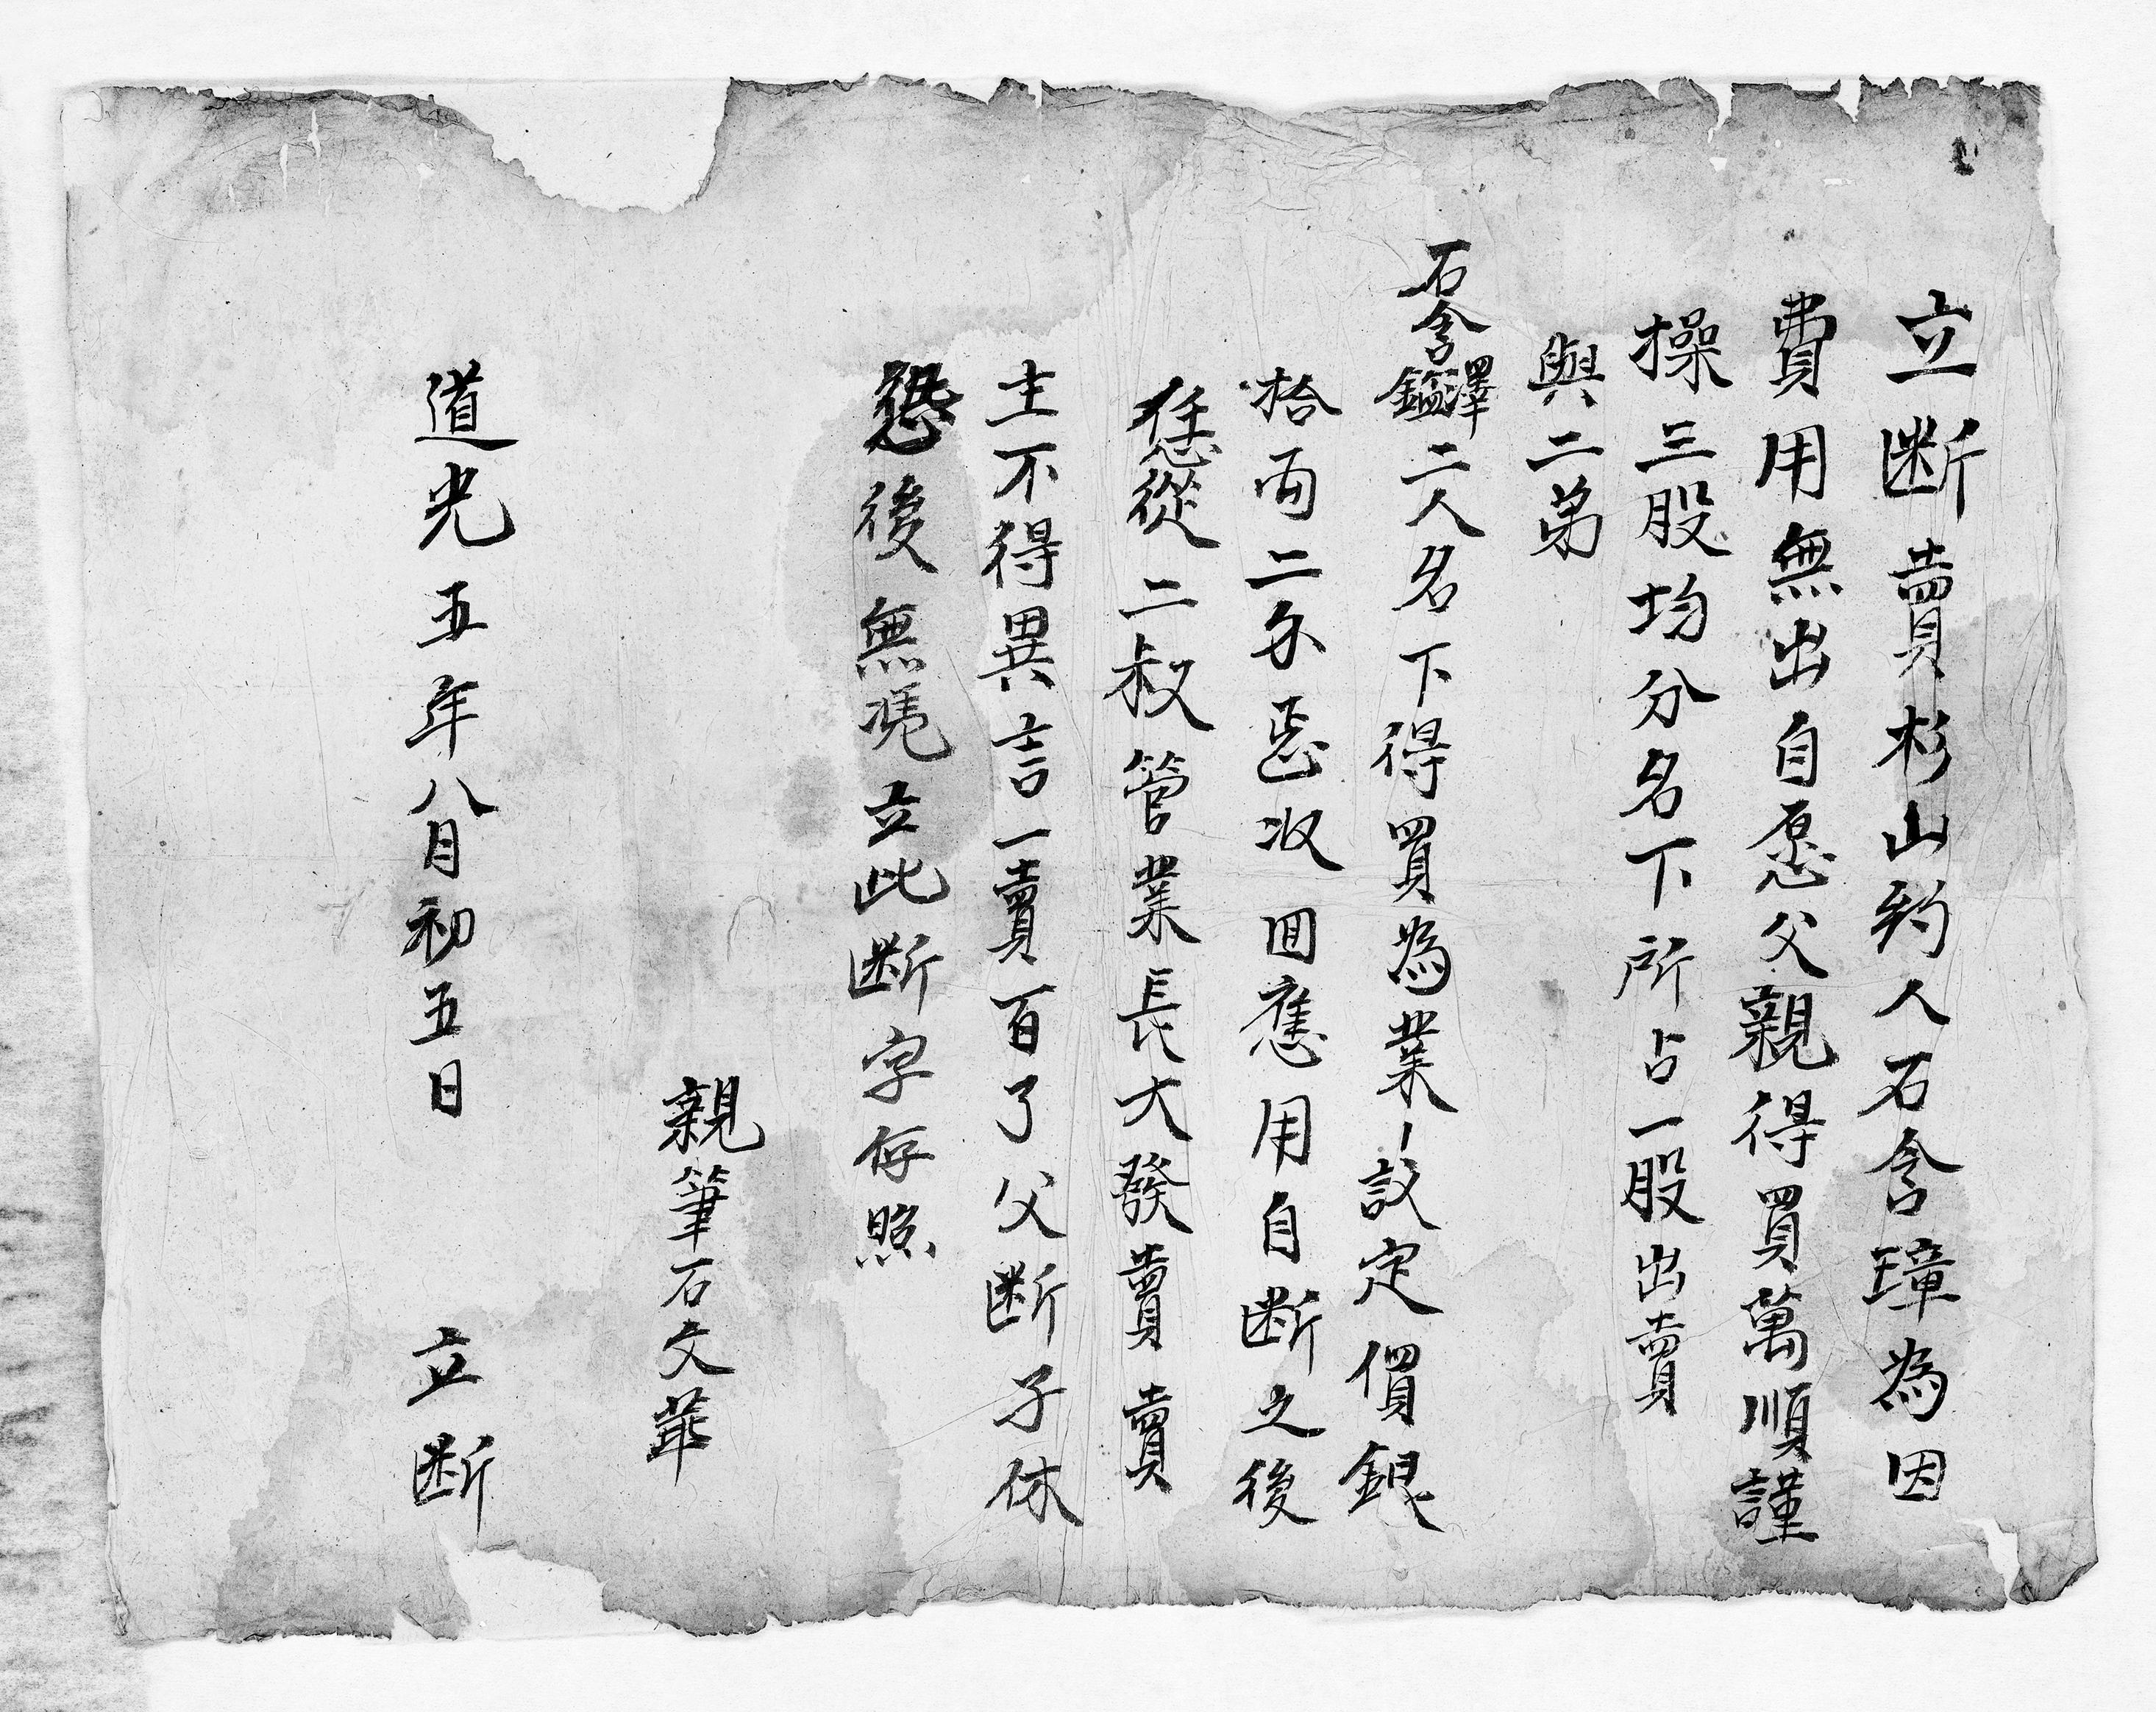 立断賣杉山約人石含璋為因
費用無出自愿父親得買萬順謹
操三股均分名下所占一股出賣
與二弟
石含鎰澤二人名下得買為業議定價銀
拾両二分忢収囬應用自断之後
恁從二叔管業長大發賣賣
主不得異言一賣百了父断子休
恐後無凴立此断字存照
親筆石文華
道光五年八月初五日 立断